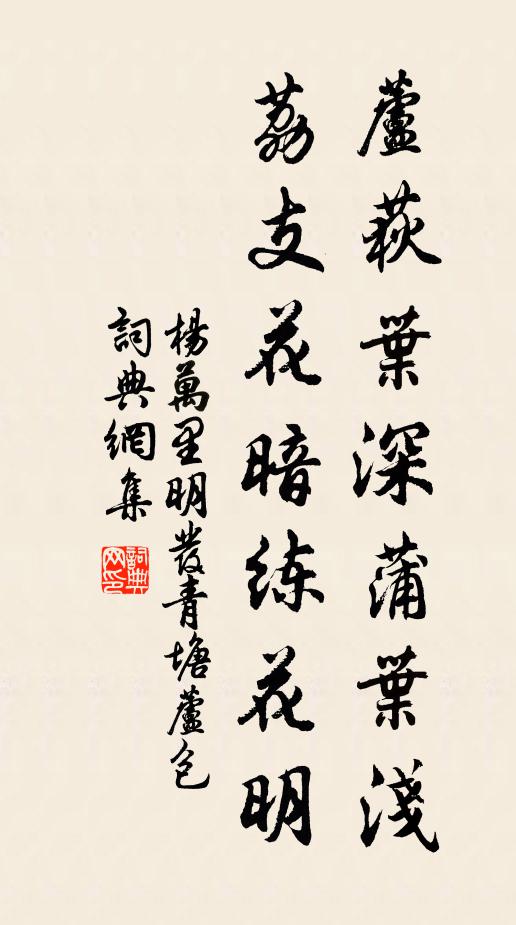 蘆荻葉深蒲葉淺
荔支花暗练花明
楊萬里明發青塘蘆包
詞典網集
詞典网印